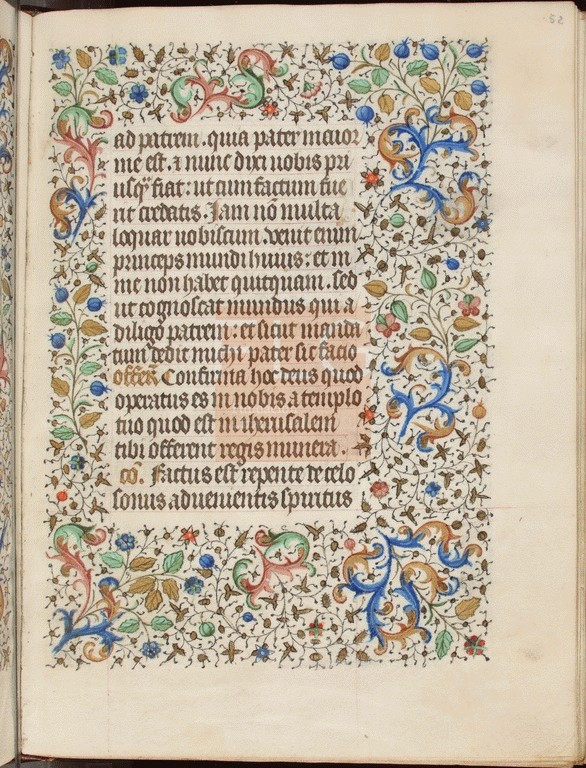 52
ad patrem. quia pater maior
me est. ⁊ nunc dixi uobis pri
usq̃ fiat: ut cum factum fue
rit credatis. Iam nõ multa
loquar uobiscum. uenit enim
princeps mundi huius: et in
me non habet quitquam. sed
ut cognoscat mundus qui a
diligo patrem: et sicut manda
tum dedit michi pater sic facio
offer̃. Confirma hoc deus quod
operatus es in nobis a templo
tuo quod est in iherusalem
tibi offerent regis munera.
cõ. Factus est repente de celo
sonus aduenientis spiritus